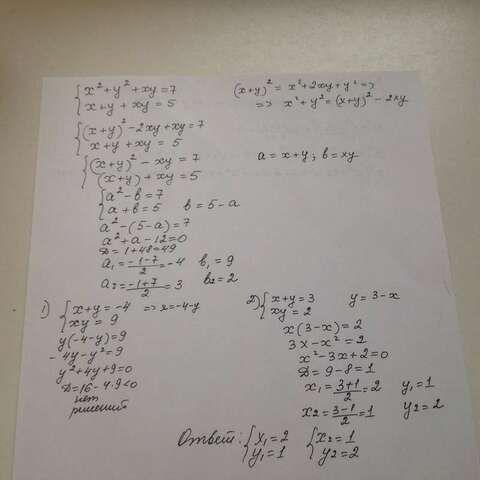 {x²+y²+xy=7
{x+y+xy=5
(x+y)²=x²+2xy+y² =>
=> x²+y²=(x+y)²-2xy
{(x+y)²-2xy+xy=7
{x+y+xy=5
{(x+y)²-xy=7
{(x+y)+xy=5
a=x+y; b=xy
{a²-b=7
{a+b=5 b=5-a
a²-(5-a)=7
a²+a-12=0
D=1+48=49
a₁=(-1-7)/2=-4 b₁=9
a₂=(-1+7)/2=3 b₂=2
1) {x+y=-4 => x=-4-y
{xy=9
y(-4-y)=9
-4y-y²=9
y²+4y+9=0
D=16-4·9<0
нет
решений
2) {x+y=3 y=3-x
{xy=2
x(3-x)=2
3x-x²=2
x²-3x+2=0
D=9-8=1
x₁=(3+1)/2=2 y₁=1
x₂=(3-1)/2=1 y₂=2
Ответ: {x₁=2 {x₂=1
{y₁=1 {y₂=2